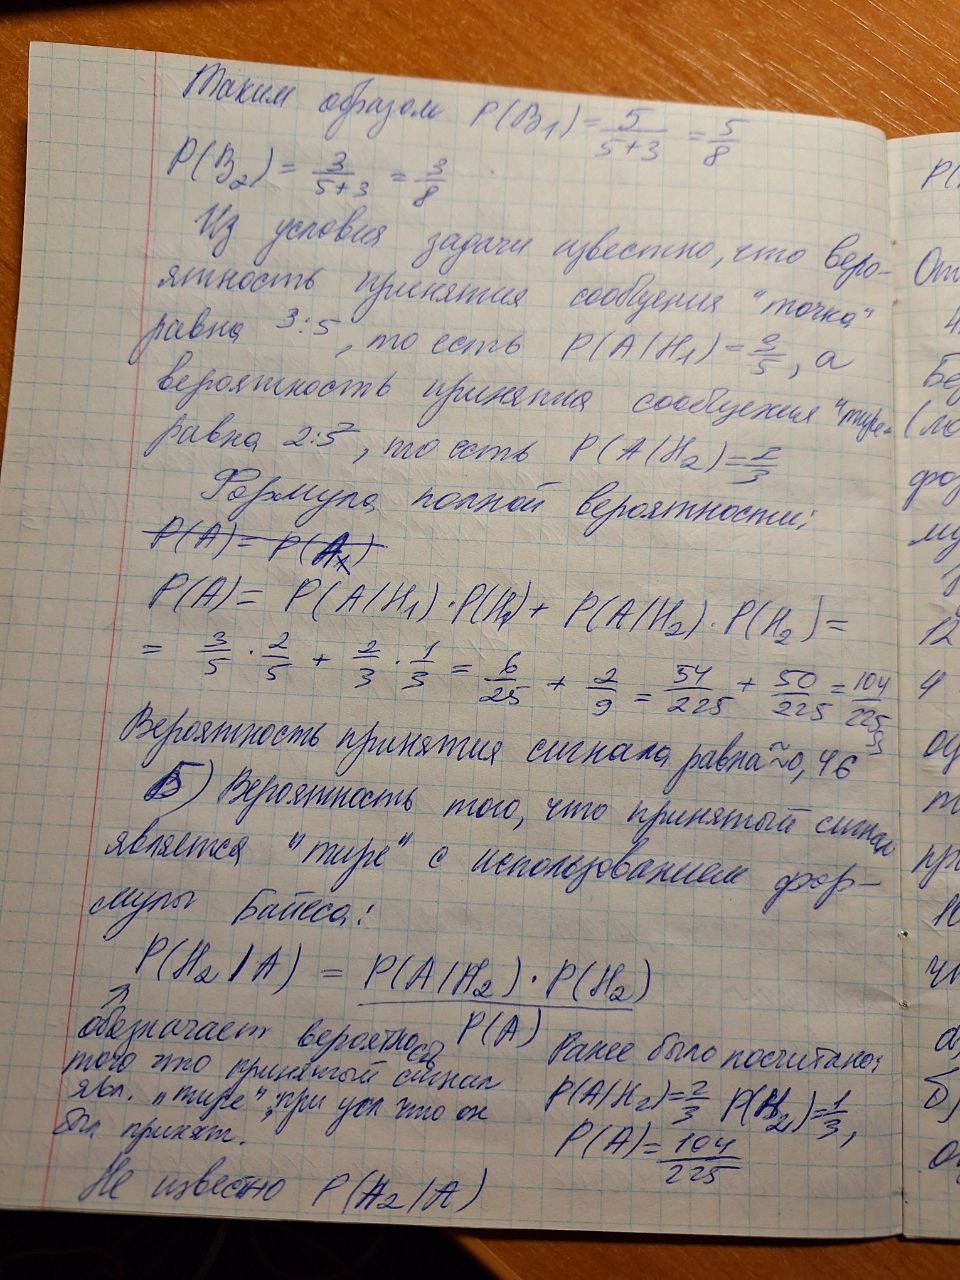 Таким образом P(B₁) = 5/(5+3) = 5/8
P(B₂) = 3/(5+3) = 3/8
Из условия задачи известно, что веро-
ятность принятия сообщения "точка"
равна 3:5, то есть P(A/H₁) = /5, а
вероятность принятия сообщения "тире"
равна 2:3, то есть P(A/H₂) = /3
Формула полной вероятности:
P(A) = P(A₁)
P(A) = P(A/H₁) · P(H₁) + P(A/H₂) · P(H₂) =
= 3/5 · 2/5 + 2/3 · 1/3 = 6/25 + 2/9 = 54/225 + 50/225 = 104/225
Вероятность принятия сигнала равна ≈ 0,46
Б) Вероятность того, что принятый сигнал
является "тире" с использованием фор-
мулы Байеса:
P(H₂/A) = P(A/H₂) · P(H₂)
P(A)
обозначает вероятность
того что принятый сигнал
явл. "тире", при усл что он
был принят.
Ранее было посчитано:
P(A/H₂) = 2/3 P(H₂) = 1/3,
P(A) = 104/225
Не известно P(H₂/A)
P(
От
4
Бе
(ло
фо
му
12
4
оу
т
пр
10
чи
а)
б)
от